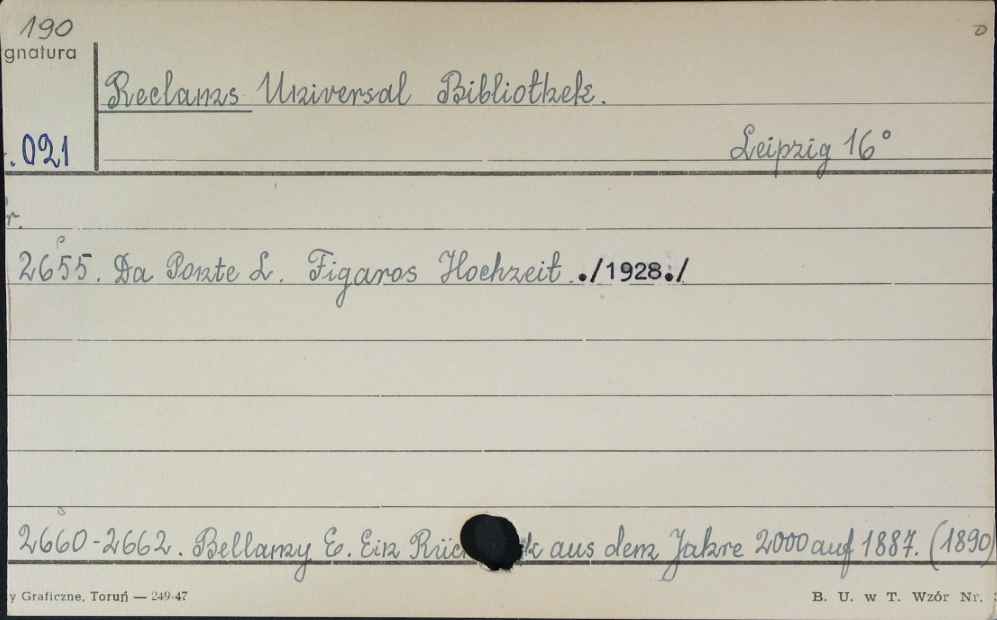 190
gnatura
Reclams Universal Bibliothek.
.021
Leipzig 16°
r.
2655. Da Ponte L. Figaros Hochzeit ./1928./
2660-2662. Bellamy E. Ein aus dem Jahre 2000 auf 1887. (1890)
y Graficzne, Toruń — 249-47
B. U. w T. Wzór Nr.